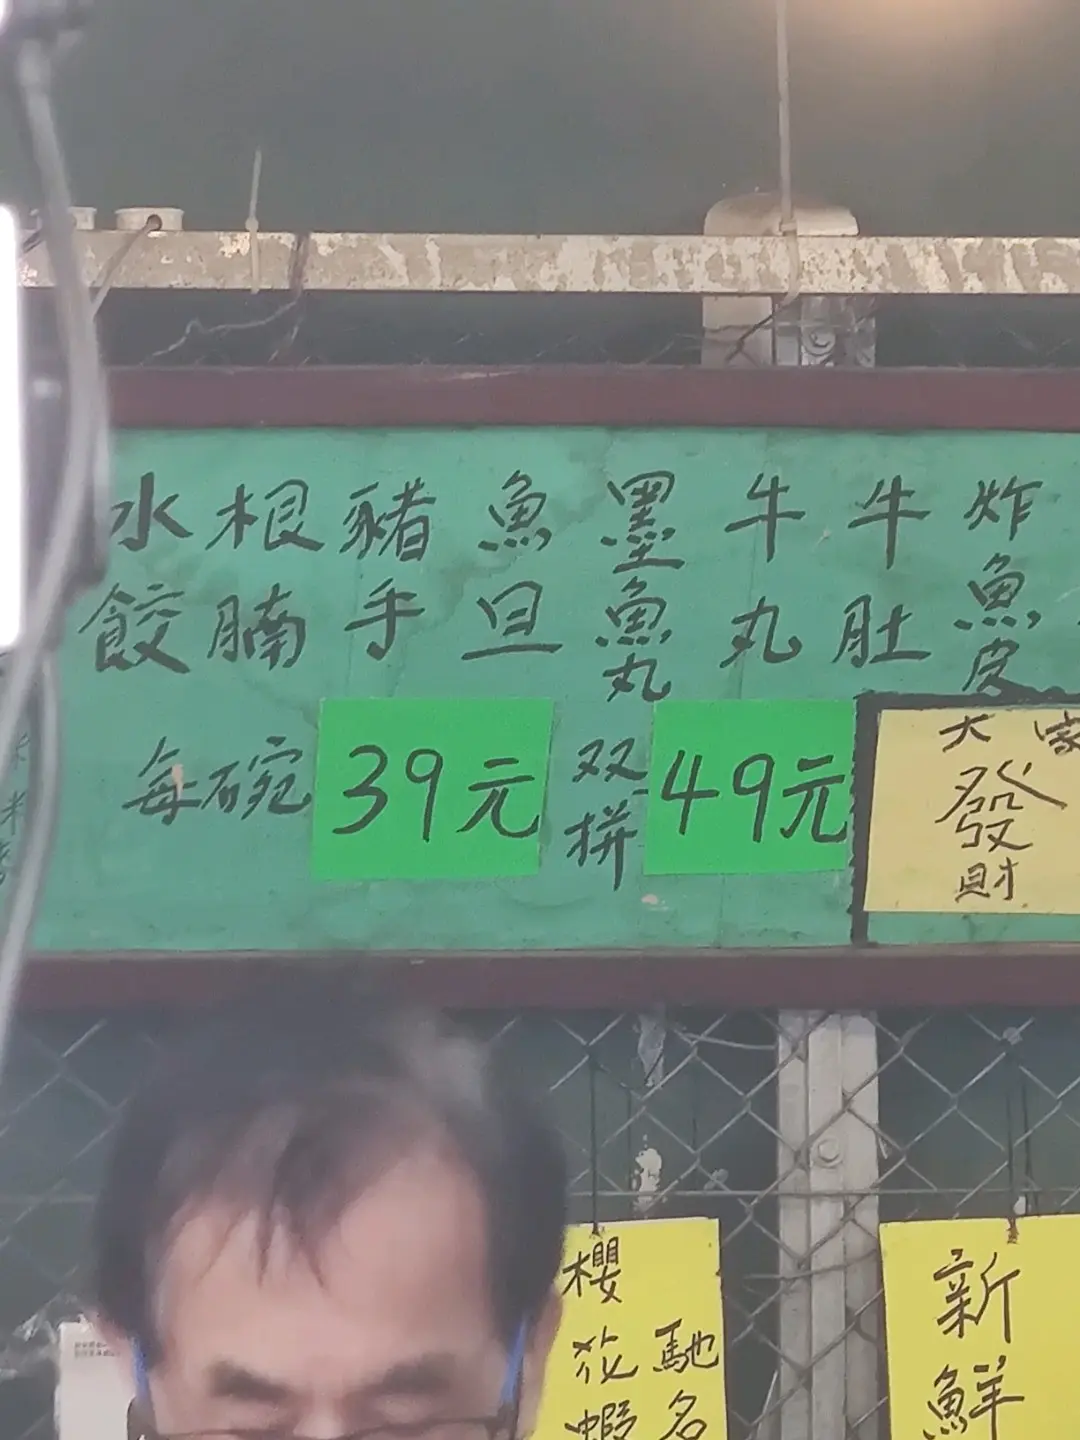 水餃
根腩
豬手
魚旦
墨魚丸
牛丸
牛肚
炸魚皮
每碗 39元
双拼 49元
大家
發
財
櫻花蝦
馳名
新鮮